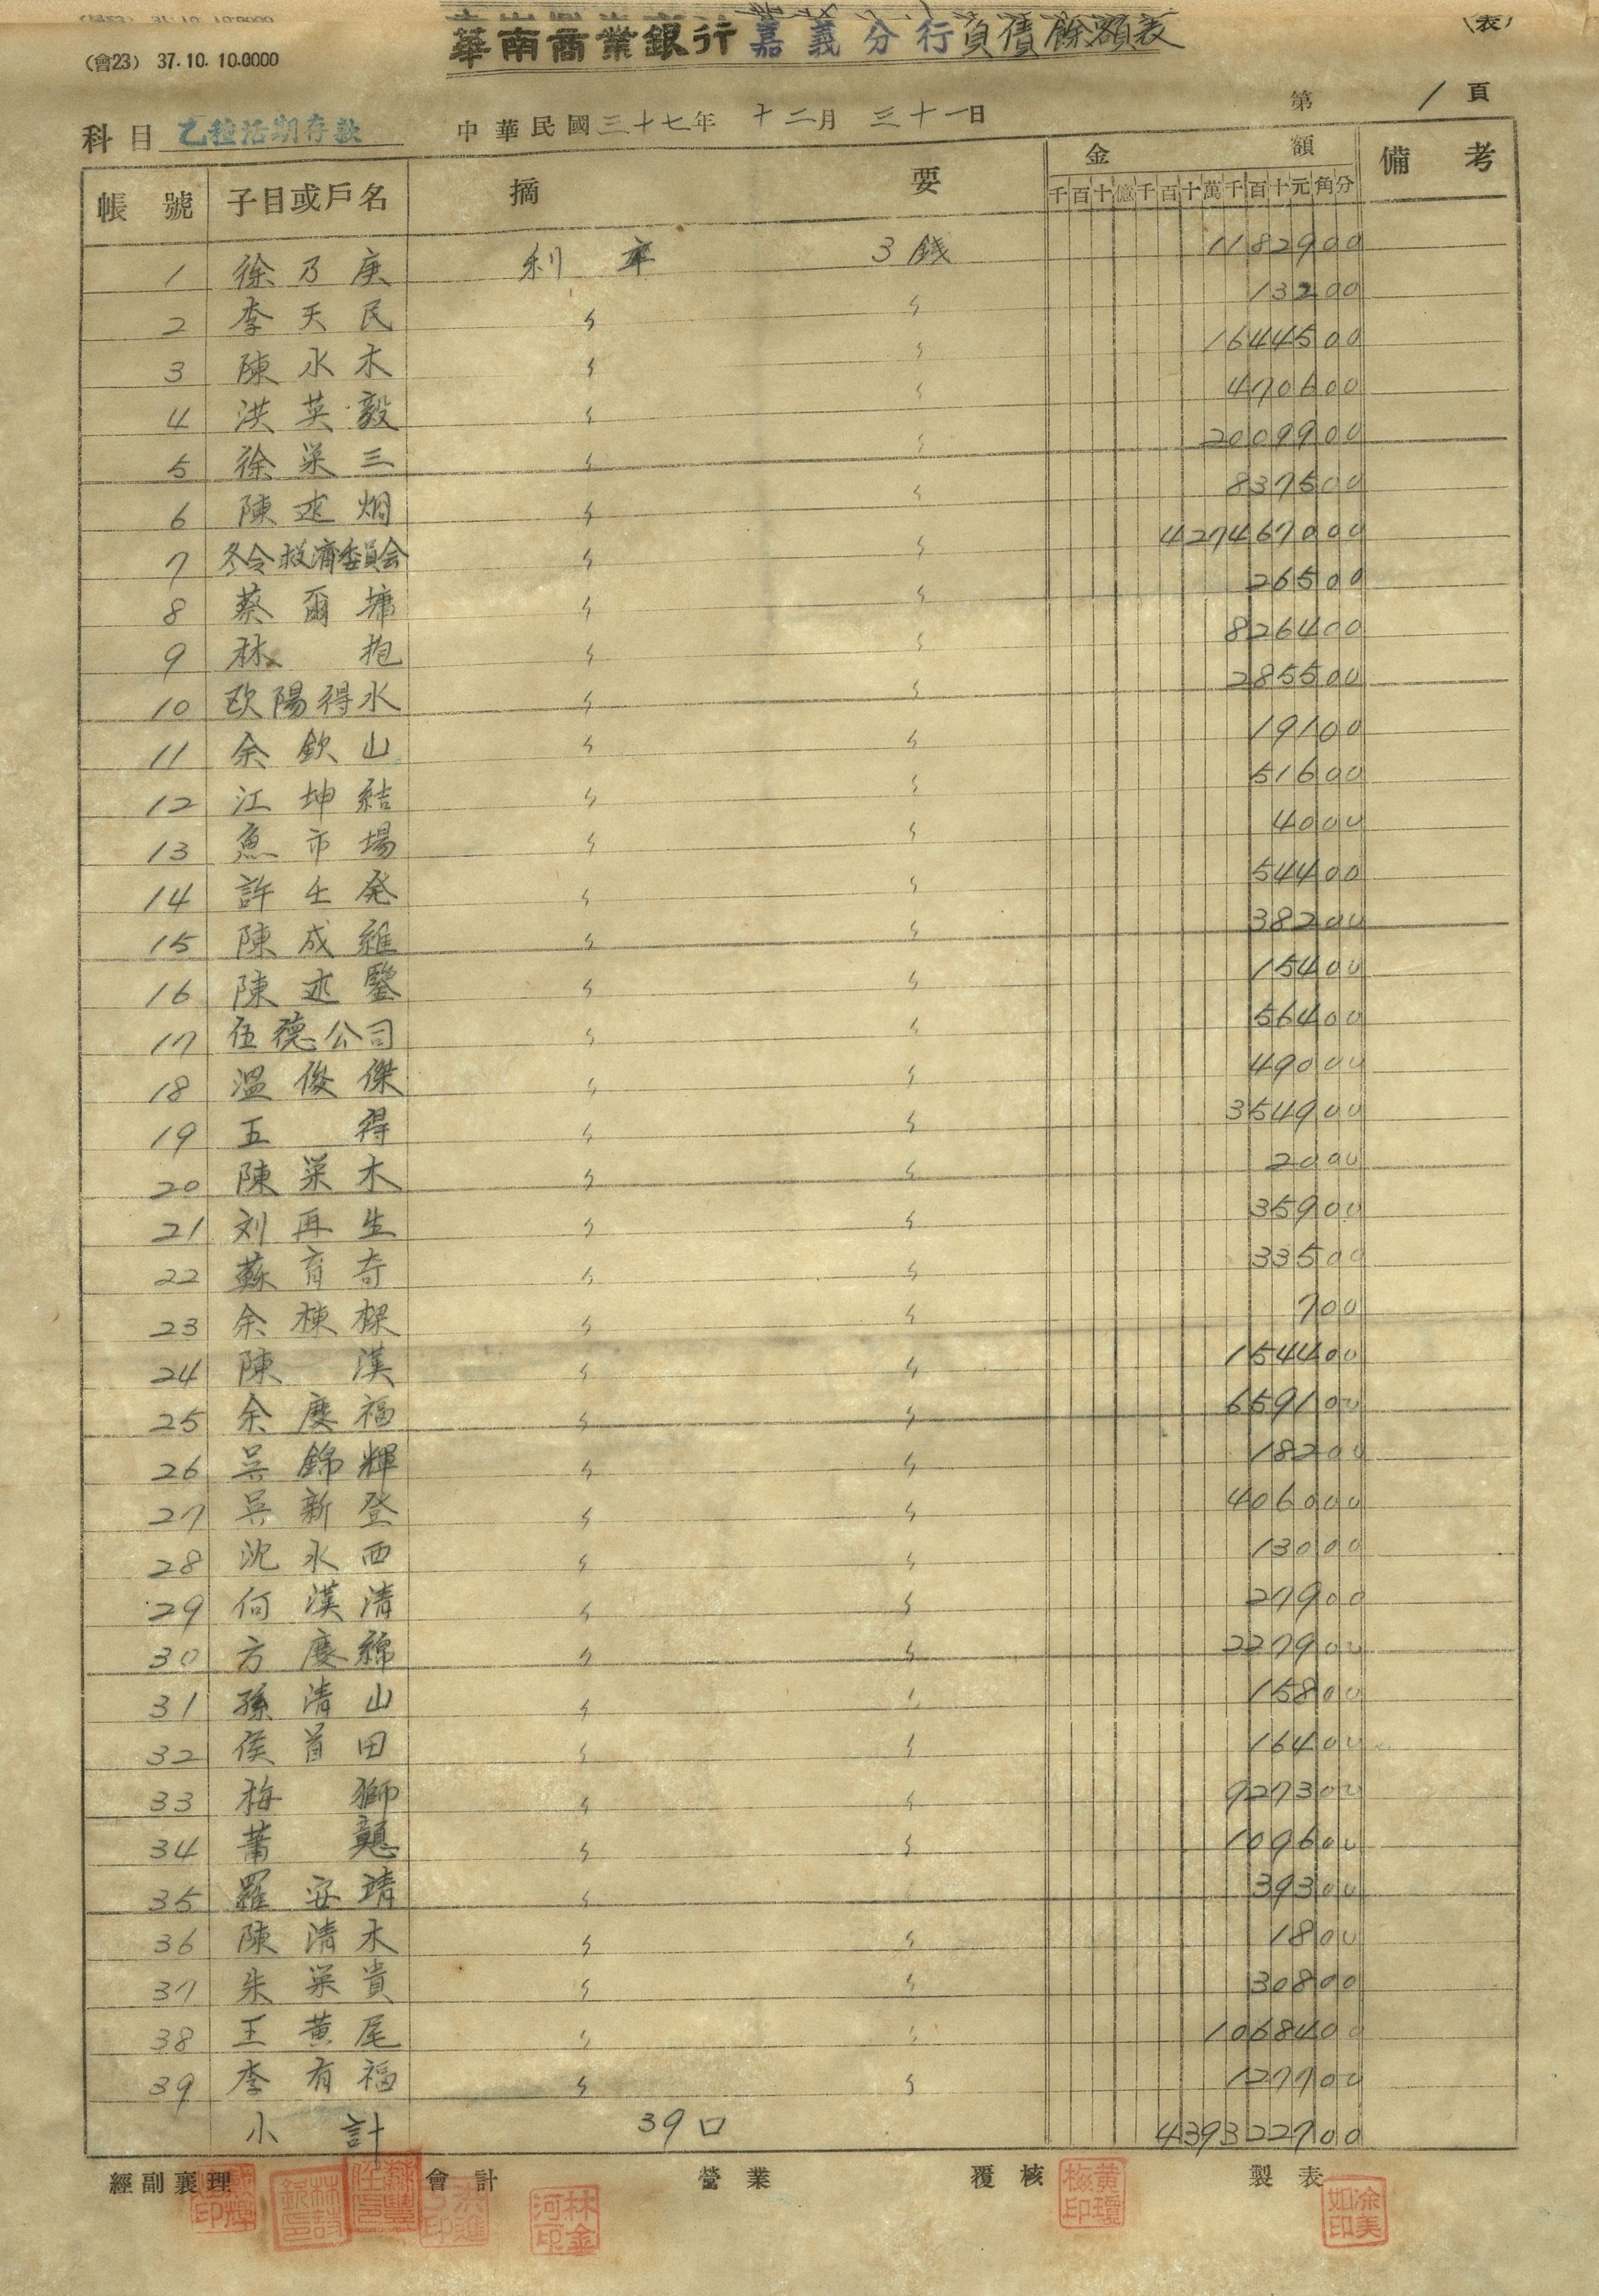 (會23) 37.10.10.0000
華南商業銀行嘉義分行負債餘額表
(表)
科目 乙種活期存款 中華民國三十七年 十二月 三十一日 第 1 頁
帳號 子目或戶名 摘要 金額 備考
千百十億千百十萬千百十元角分
1 徐乃庚 利率 3錢 1182900
2 李天民 〃 〃 13200
3 陳水木 〃 〃 1644500
4 洪英毅 〃 〃 470600
5 徐栄三 〃 〃 2009900
6 陳述烱 〃 〃 837500
7 冬令救濟委員会 〃 〃 427467000
8 蔡爾墉 〃 〃 26500
9 林抱 〃 〃 826400
10 欧陽得水 〃 〃 285500
11 余欽山 〃 〃 19100
12 江坤結 〃 〃 51600
13 魚市場 〃 〃 4000
14 許壬発 〃 〃 54400
15 陳成雄 〃 〃 38200
16 陳述鑒 〃 〃 15400
17 伍德公司 〃 〃 56400
18 溫俊傑 〃 〃 49000
19 五得 〃 〃 354900
20 陳栄木 〃 〃 2000
21 刘再生 〃 〃 35900
22 蘇育奇 〃 〃 33500
23 余棟樑 〃 〃 700
24 陳漢 〃 〃 154400
25 余慶福 〃 〃 659100
26 吳錦輝 〃 〃 18200
27 吳新登 〃 〃 406000
28 沈永西 〃 〃 13000
29 何漢清 〃 〃 27900
30 方慶綿 〃 〃 227900
31 孫清山 〃 〃 15800
32 侯首田 〃 〃 16400
33 梅獅 〃 〃 927300
34 蕭 〃 〃 109600
35 羅安靖 〃 39300
36 陳清木 〃 〃 1800
37 朱栄貴 〃 〃 30800
38 王黃尾 〃 〃 1068400
39 李有福 〃 〃 127700
小計 39口 439322700
經副襄理 會計 營業 覆核 製表
林金河印
黃瓊梅印
余美如印